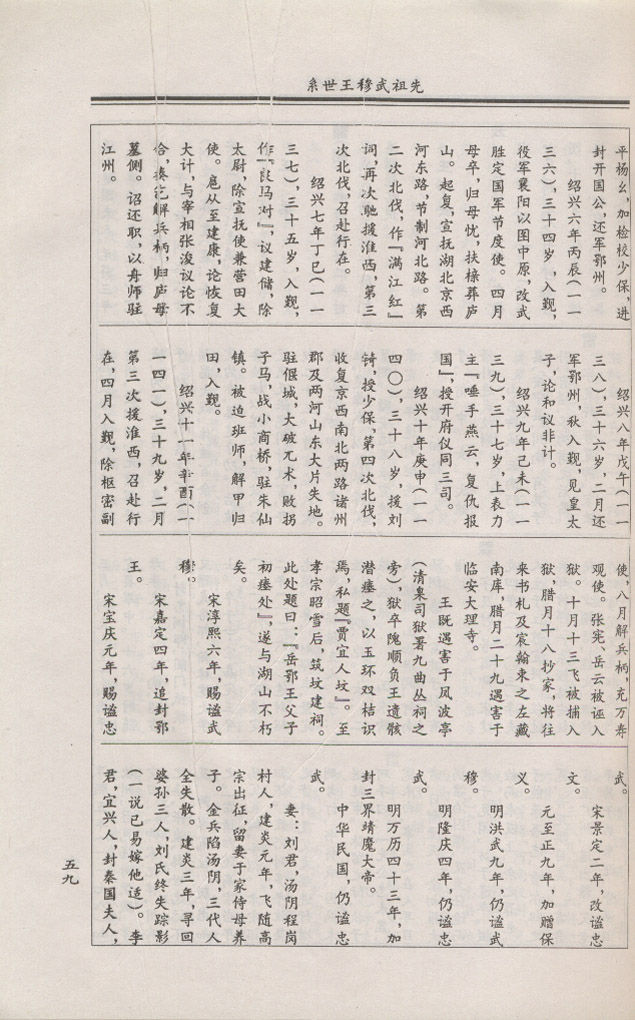 先祖武穆王世系
平杨幺，加检校少保，进
封开国公，还军鄂州。
绍兴六年丙辰（一一
三六），三十四岁，入觐，
役军襄阳以图中原，改武
胜定国军节度使。四月
母卒，归母忧，扶榇葬庐
山。起复，宣抚湖北京西
河东路，节制河北路。第
二次北伐，作『满江红』
词，再次驰援淮西，第三
次北伐，召赴行在。
绍兴七年丁巳（一一
三七），三十五岁，入觐，
作『良马对』，议建储，除
太尉，除宣抚使兼营田大
使。扈从至建康，论恢复
大计，与宰相张浚议论不
合，奏乞解兵柄，归庐母
墓侧。诏还职，以舟师驻
江州。
绍兴八年戊午（一一
三八），三十六岁，二月还
军鄂州，秋入觐，见皇太
子，论和议非计。
绍兴九年己未（一一
三九），三十七岁，上表力
主『唾手燕云，复仇报
国』，授开府仪同三司。
绍兴十年庚申（一一
四〇），三十八岁，援刘
锜，授少保，第四次北伐，
收复京西南北两路诸州
郡及两河山东大片失地。
驻偃城，大破兀术，败拐
子马，战小商桥，驻朱仙
镇。被迫班师，解甲归
田，入觐。
绍兴十一年辛酉（一
一四一），三十九岁，二月
第三次援淮西，召赴行
在，四月入觐，除枢密副
使，八月解兵柄，充万寿
观使。张宪、岳云被诬入
狱。十月十三飞被捕入
狱，腊月十八抄家，将往
来书札及宸翰束之左藏
南库，腊月二十九遇害于
临安大理寺。
王既遇害于凤波亭
（清臬司狱署九曲丛祠之
旁），狱卒隗顺负王遗骸
潜瘗之，以玉环双桔识
焉，私题『贾宜人坟』。至
孝宗昭雪后，筑坟建祠。
此处题曰：『岳鄂王父子
初瘗处』，遂与湖山不朽
矣。
宋淳熙六年，赐谥武
穆。
宋嘉定四年，追封鄂
王。
宋宝庆元年，赐谥忠
武。
宋景定二年，改谥忠
文。
元至正九年，加赠保
义。
明洪武九年，仍谥武
穆。
明隆庆四年，仍谥忠
武。
明万历四十三年，加
封三界靖魔大帝。
中华民国，仍谥忠
武。
妻：刘君，汤阴程岗
村人，建炎元年，飞随高
宗出征，留妻于家侍母养
子。金兵陷汤阴，三代人
全失散。建炎三年，寻回
婆孙三人，刘氏终失踪影
（一说已易嫁他适）。李
君，宜兴人，封秦国夫人，
五九